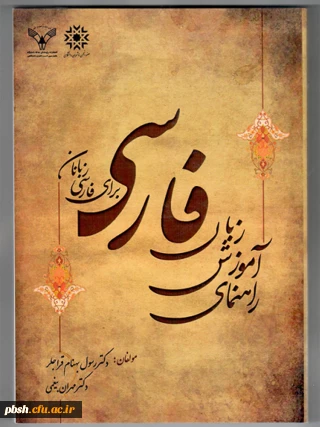 راهنمای
آموزش
زبان
فارسی
برای فارسی زبانان
مولفان: دکتر رسول بهنام قراجلر
دکتر مهران
pbsh.cfu.ac.ir